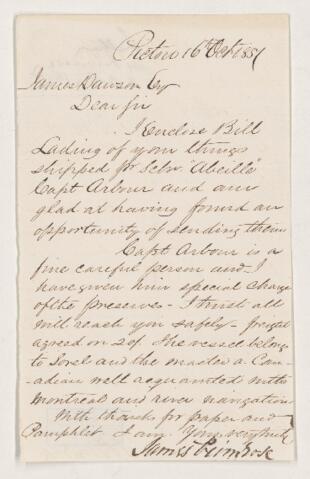 Pictou 16 Oct 1851
James Dawson Esq
Dear Sir
I enclose Bill
Lading of your things
shipped pr Schr "Abeille"
Capt Arbour and am
glad at having found an
opportunity of sending them
Capt Arbour is a
fine careful person and I
have given him special charge
of the preserves - I trust all
will reach you safely - freight
agreed on 20/. The vessel belongs
to Sorel and the master a Can-
adian well acquainted with
Montreal and river navigation
With thanks for paper and
Pamphlet I am Yours very truly
James Primrose